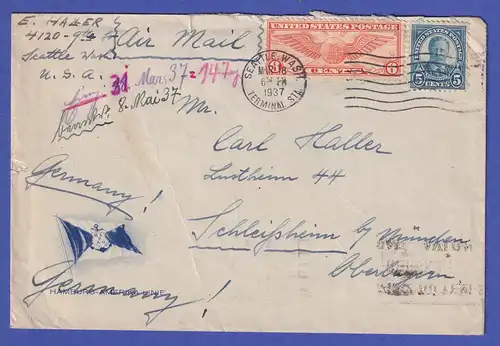 E. HALLER
4120-9
Seattle Wash
U. S. A.
Air Mail
31. März 37 = 147
8. Mai 37
UNITED STATES POSTAGE
6 CENTS 6
UNITED STATES POSTAGE
5 CENTS 5
SEATTLE, WASH.
MAR 18
6 PM
1937
TERMINAL STA.
Mr.
Carl Haller
Lustheim 44
Schleißheim b/ München
Oberbayern
Germany!
Germany!
HAMBURG-AMERIKA LINIE